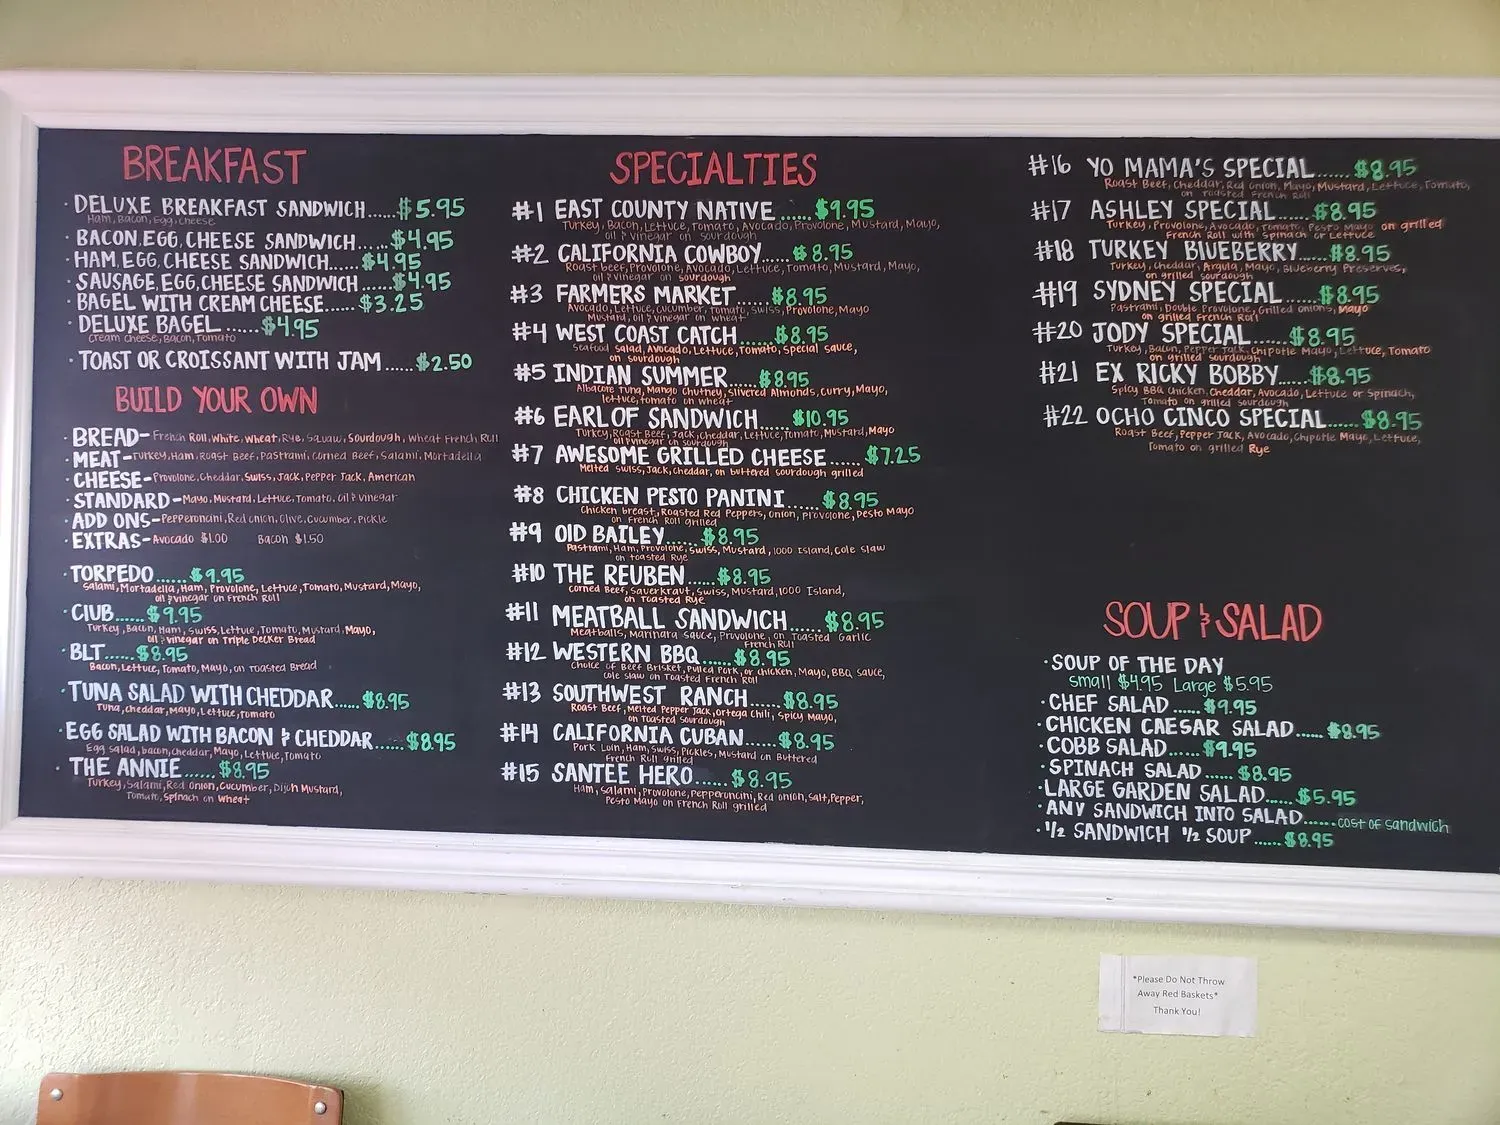 BREAKFAST
· DELUXE BREAKFAST SANDWICH......$5.95
Ham, Bacon, Egg, Cheese
· BACON, EGG, CHEESE SANDWICH......$4.95
· HAM, EGG, CHEESE SANDWICH......$4.95
· SAUSAGE, EGG, CHEESE SANDWICH......$4.95
· BAGEL WITH CREAM CHEESE......$3.25
· DELUXE BAGEL......$4.95
Cream Cheese, Bacon, Tomato
· TOAST OR CROISSANT WITH JAM......$2.50
BUILD YOUR OWN
· BREAD- French Roll, White, Wheat, Rye, Squaw, Sourdough, Wheat French Roll
· MEAT- Turkey, Ham, Roast Beef, Pastrami, Corned Beef, Salami, Mortadella
· CHEESE- Provolone, Cheddar, Swiss, Jack, Pepper Jack, American
· STANDARD- Mayo, Mustard, Lettuce, Tomato, Oil & Vinegar
· ADD ONS- Pepperoncini, Red onion, Olive, Cucumber, Pickle
· EXTRAS- Avocado $1.00 Bacon $1.50
· TORPEDO......$9.95
Salami, Mortadella, Ham, Provolone, Lettuce, Tomato, Mustard, Mayo,
oil & vinegar on French Roll
· CLUB......$9.95
Turkey, Bacon, Ham, Swiss, Lettuce, Tomato, Mustard, Mayo,
oil & vinegar on Triple Decker Bread
· BLT......$8.95
Bacon, Lettuce, Tomato, Mayo, on Toasted Bread
· TUNA SALAD WITH CHEDDAR......$8.95
Tuna, Cheddar, Mayo, Lettuce, Tomato
· EGG SALAD WITH BACON & CHEDDAR......$8.95
Egg salad, bacon, cheddar, Mayo, Lettuce, Tomato
· THE ANNIE......$8.95
Turkey, Salami, Red onion, Cucumber, Dijon Mustard,
Tomato, Spinach on Wheat
SPECIALTIES
#1 EAST COUNTY NATIVE......$9.95
Turkey, Bacon, Lettuce, Tomato, Avocado, Provolone, Mustard, Mayo,
oil & vinegar on sourdough
#2 CALIFORNIA COWBOY......$8.95
Roast beef, Provolone, Avocado, Lettuce, Tomato, Mustard, Mayo,
oil & vinegar on sourdough
#3 FARMERS MARKET......$8.95
Avocado, Lettuce, cucumber, tomato, Swiss, Provolone, Mayo
Mustard, oil & vinegar on wheat
#4 WEST COAST CATCH......$8.95
Seafood salad, Avocado, Lettuce, Tomato, Special Sauce,
on sourdough
#5 INDIAN SUMMER......$8.95
Albacore Tuna, Mango Chutney, Slivered Almonds, curry, Mayo,
lettuce, tomato on wheat
#6 EARL OF SANDWICH......$10.95
Turkey, Roast Beef, Jack, Cheddar, Lettuce, Tomato, Mustard, Mayo
oil & vinegar on sourdough
#7 AWESOME GRILLED CHEESE......$7.25
Melted Swiss, Jack, cheddar, on buttered sourdough grilled
#8 CHICKEN PESTO PANINI......$8.95
Chicken breast, Roasted Red Peppers, onion, provolone, pesto Mayo
on French Roll grilled
#9 OLD BAILEY......$8.95
Pastrami, Ham, Provolone, Swiss, Mustard, 1000 Island, Cole Slaw
on toasted Rye
#10 THE REUBEN......$8.95
Corned Beef, Sauerkraut, Swiss, Mustard, 1000 Island,
on Toasted Rye
#11 MEATBALL SANDWICH......$8.95
Meatballs, Marinara sauce, Provolone, on Toasted Garlic
French Roll
#12 WESTERN BBQ......$8.95
Choice of Beef Brisket, Pulled Pork, or chicken, Mayo, BBQ sauce,
cole slaw on Toasted French Roll
#13 SOUTHWEST RANCH......$8.95
Roast Beef, Melted Pepper Jack, Ortega Chili, Spicy Mayo,
on Toasted Sourdough
#14 CALIFORNIA CUBAN......$8.95
Pork Loin, Ham, Swiss, Pickles, Mustard on Buttered
French Roll grilled
#15 SANTEE HERO......$8.95
Ham, salami, Provolone, Pepperoncini, Red onion, Salt, Pepper,
Pesto Mayo on French Roll grilled
#16 YO MAMA'S SPECIAL......$8.95
Roast Beef, Cheddar, Red Onion, Mayo, Mustard, Lettuce, Tomato,
on toasted French Roll
#17 ASHLEY SPECIAL......$8.95
Turkey, Provolone, Avocado, Tomato, Pesto Mayo on grilled
French Roll with Spinach or Lettuce
#18 TURKEY BLUEBERRY......$8.95
Turkey, Cheddar, Argula, Mayo, Blueberry Preserves,
on grilled sourdough
#19 SYDNEY SPECIAL......$8.95
Pastrami, Double Provolone, Grilled onions, Mayo
on grilled French Roll
#20 JODY SPECIAL......$8.95
Turkey, Bacon, Pepper Jack, Chipotle Mayo, Lettuce, Tomato
on grilled sourdough
#21 EX RICKY BOBBY......$8.95
Spicy BBQ Chicken, Cheddar, Avocado, Lettuce or Spinach,
Tomato on grilled sourdough
#22 OCHO CINCO SPECIAL......$8.95
Roast Beef, Pepper Jack, Avocado, Chipotle Mayo, Lettuce,
Tomato on grilled Rye
SOUP & SALAD
· SOUP OF THE DAY
small $4.95 Large $5.95
· CHEF SALAD......$9.95
· CHICKEN CAESAR SALAD......$8.95
· COBB SALAD......$9.95
· SPINACH SALAD......$8.95
· LARGE GARDEN SALAD......$5.95
· ANY SANDWICH INTO SALAD......cost of sandwich
· 1/2 SANDWICH 1/2 SOUP......$8.95
*Please Do Not Throw
Away Red Baskets*
Thank You!